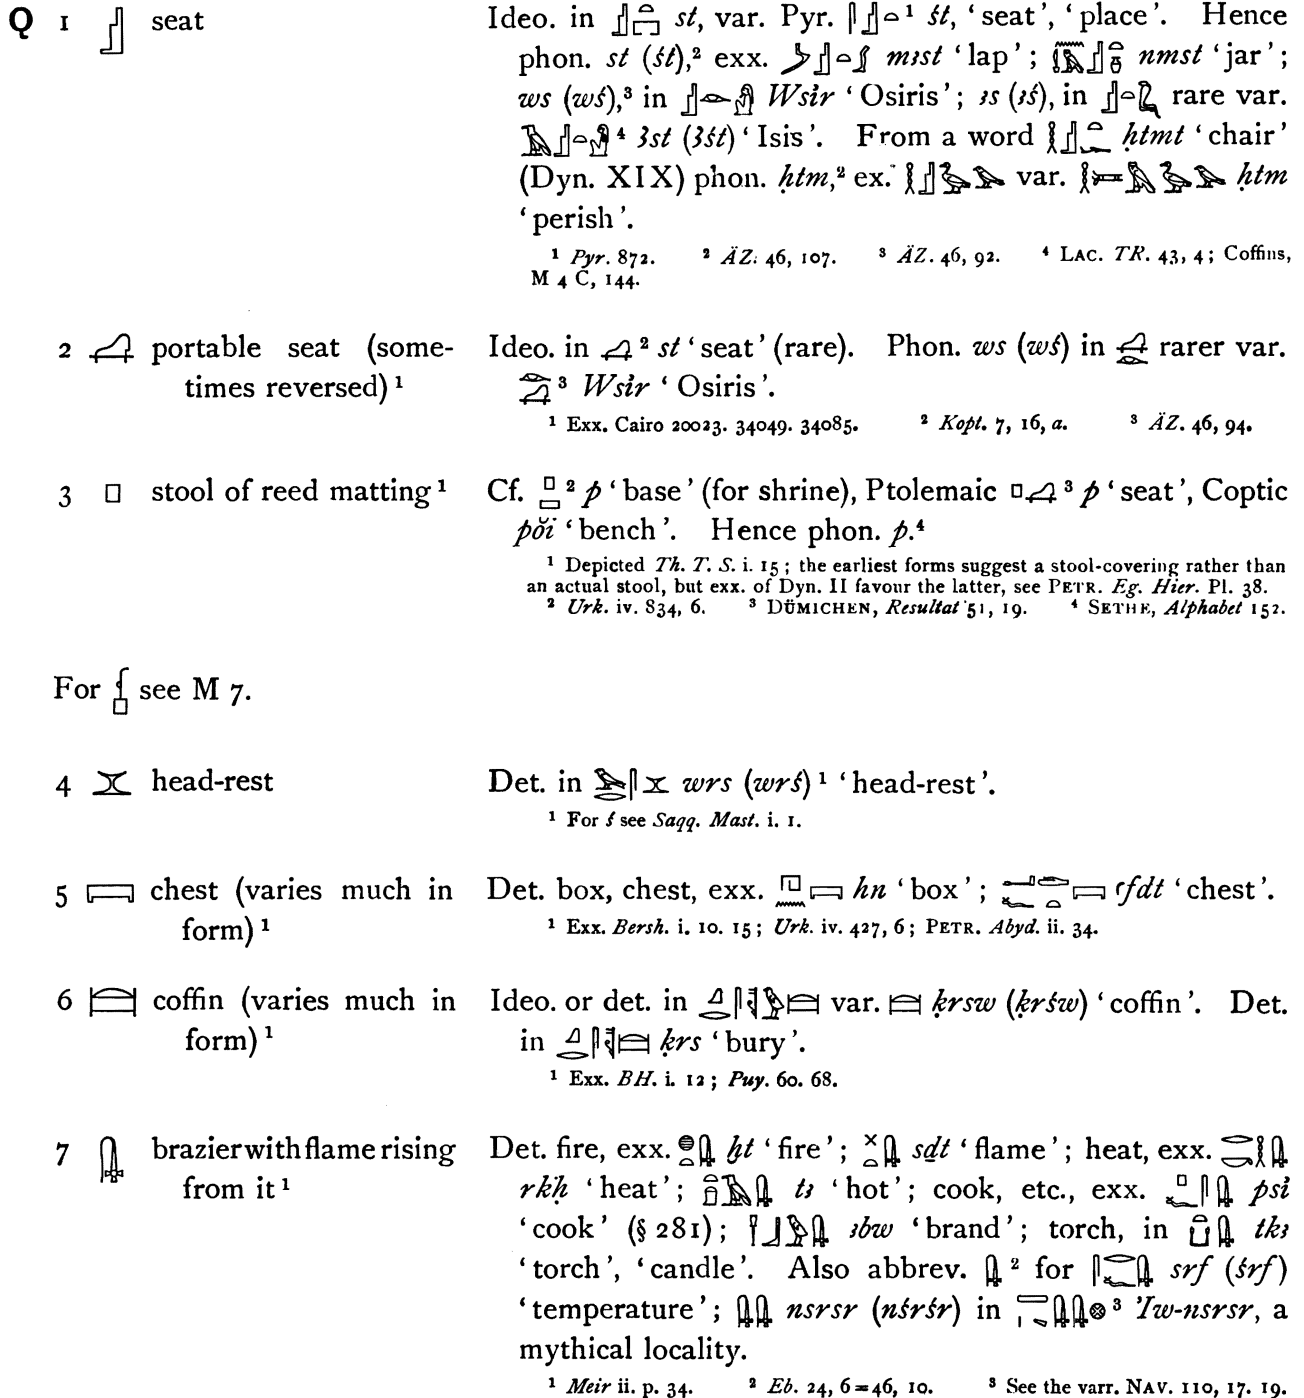 Q 1 𓊨 seat Ideo. in 𓊨𓏏𓉐 st, var. Pyr. 𓋴𓊨𓏏¹ śt, ‘seat’, ‘place’. Hence
phon. st (śt),² exx. 𓌳𓊨𓏏 mꜣst ‘lap’; nmst ‘jar’;
ws (wś),³ in 𓊨𓁹𓀭 Wsỉr ‘Osiris’; ꜣs (ꜣś), in 𓊨𓏏 rare var.
𓄿𓊨𓏏⁴ Ꜣst (Ꜣśt) ‘Isis’. From a word 𓎛𓊨𓏏 ḥtmt ‘chair’
(Dyn. XIX) phon. ḥtm,² ex. 𓎛𓊨𓅭𓅪 var. 𓎛𓍃𓅓𓅭𓅪 ḥtm
‘perish’.
¹ Pyr. 872. ² ÄZ. 46, 107. ³ ÄZ. 46, 92. ⁴ LAC. TR. 43, 4; Coffins,
M 4 C, 144.
2 𓊩 portable seat (some- Ideo. in 𓊩² st ‘seat’ (rare). Phon. ws (wś) in 𓊩𓁹 rarer var.
times reversed)¹ 𓁹𓊩³ Wsỉr ‘Osiris’.
¹ Exx. Cairo 20023. 34049. 34085. ² Kopt. 7, 16, a. ³ ÄZ. 46, 94.
3 𓊪 stool of reed matting¹ Cf. 𓊪𓈅² p ‘base’ (for shrine), Ptolemaic 𓊪𓊩³ p ‘seat’, Coptic
pŏi ‘bench’. Hence phon. p.⁴
¹ Depicted Th. T. S. i. 15; the earliest forms suggest a stool-covering rather than
an actual stool, but exx. of Dyn. II favour the latter, see PETR. Eg. Hier. Pl. 38.
² Urk. iv. 834, 6. ³ DÜMICHEN, Resultat 51, 19. ⁴ SETHE, Alphabet 152.
For 𓇔 see M 7.
4 𓊫 head-rest Det. in 𓅨𓂋𓋴𓊫 wrs (wrś)¹ ‘head-rest’.
¹ For ś see Saqq. Mast. i. 1.
5 𓊬 chest (varies much in Det. box, chest, exx. 𓉔𓈖𓊬 hn ‘box’; 𓂝𓆑𓂧𓏏𓊬 ꜥfdt ‘chest’.
form)¹ ¹ Exx. Bersh. i. 10. 15; Urk. iv. 427, 6; PETR. Abyd. ii. 34.
6 𓊭 coffin (varies much in Ideo. or det. in 𓈎𓂋𓋴𓅱𓊭 var. 𓊭 ḳrsw (ḳrśw) ‘coffin’. Det.
form)¹ in 𓈎𓂋𓋴𓊭 ḳrs ‘bury’.
¹ Exx. BH. i. 12; Puy. 60. 68.
7 𓊮 brazier with flame rising Det. fire, exx. 𓐍𓏏𓊮 ḫt ‘fire’; 𓏴𓏏𓊮 sḏt ‘flame’; heat, exx. 𓂋𓎡𓎛𓊮
from it¹ rkḥ ‘heat’; 𓏏𓄿𓊮 tꜣ ‘hot’; cook, etc., exx. 𓊪𓋴𓊮 psỉ
‘cook’ (§ 281); 𓍋𓃀𓅱𓊮 ꜣbw ‘brand’; torch, in 𓏏𓊮 tkꜣ
‘torch’, ‘candle’. Also abbrev. 𓊮² for 𓋴𓂋𓆑𓊮 srf (śrf)
‘temperature’; 𓊮𓊮 nsrsr (nśrśr) in 𓊮𓊮𓊖³ ’Iw-nsrsr, a
mythical locality.
¹ Meir ii. p. 34. ² Eb. 24, 6=46, 10. ³ See the varr. NAV. 110, 17. 19.